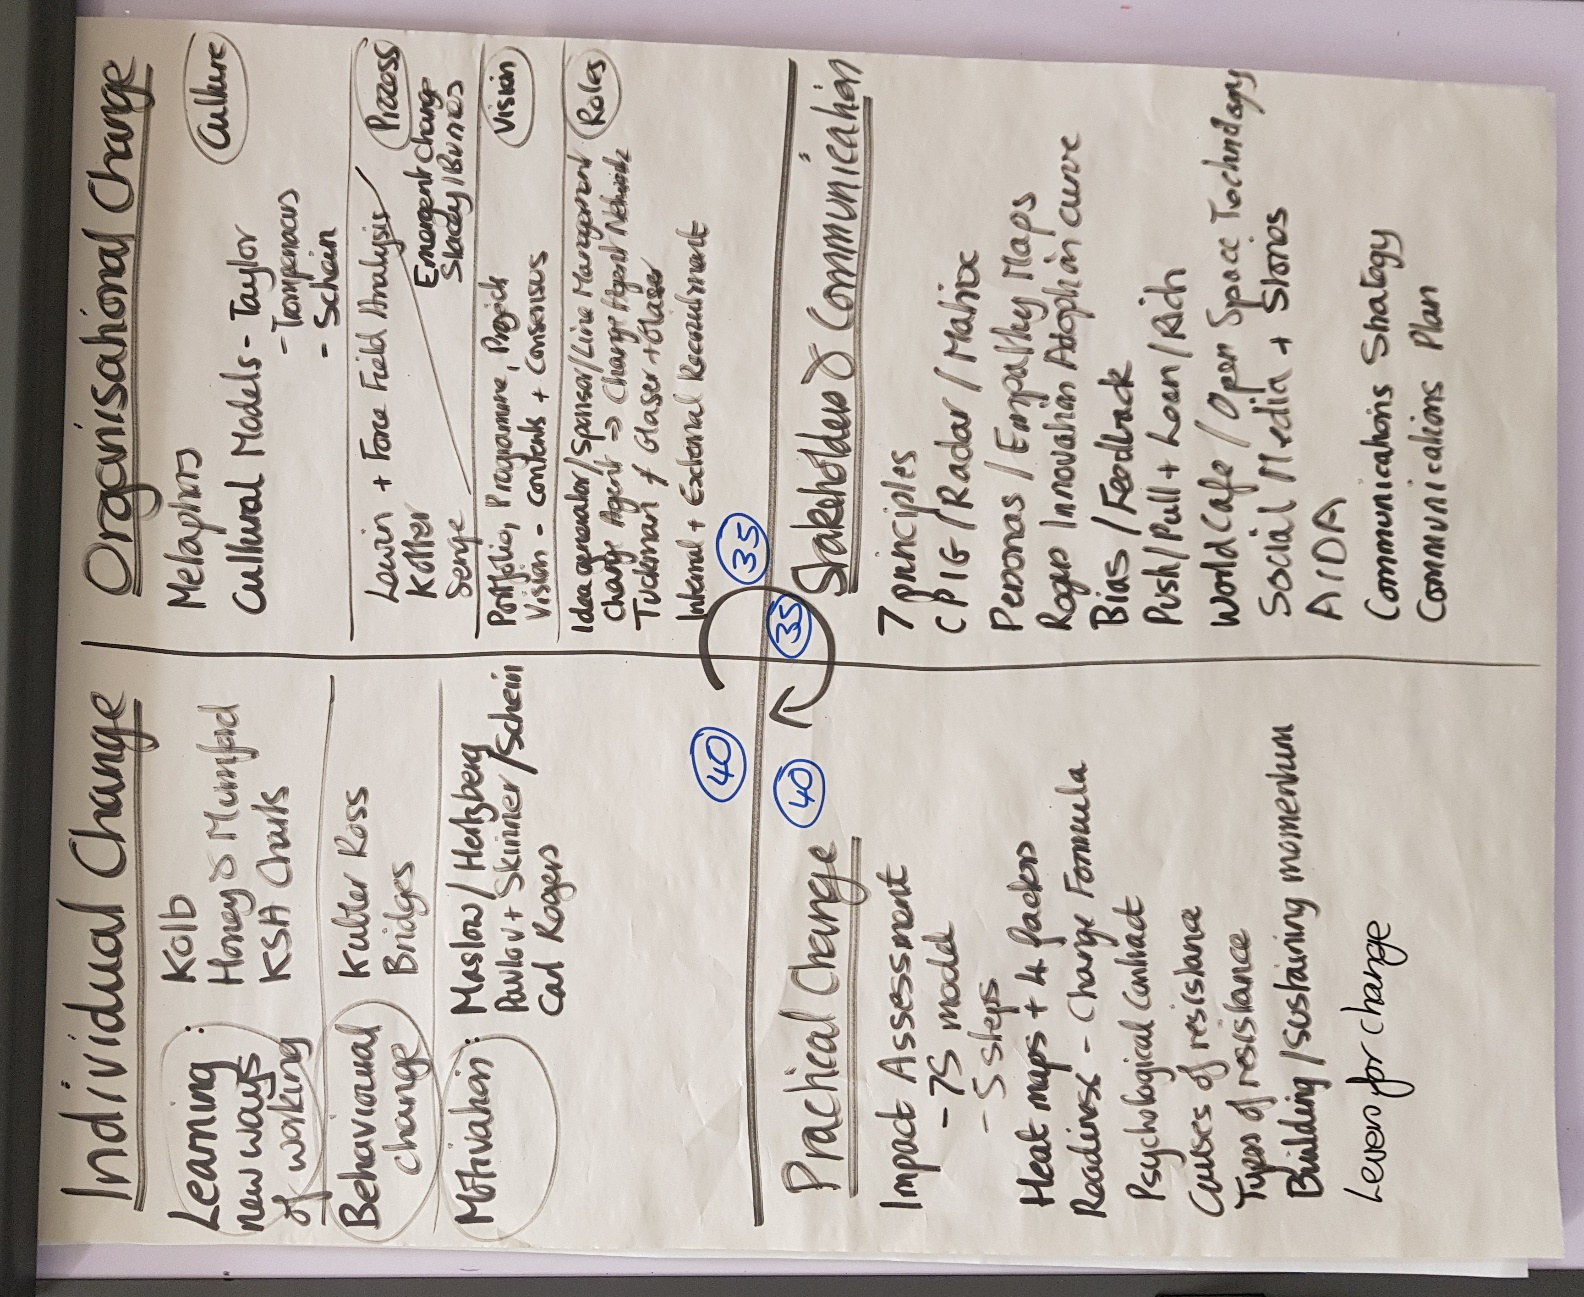 Individual Change
Learning :
new ways
of working
Kolb
Honey & Mumford
KSA Charts
Behavioural
change
Kubler Ross
Bridges
Motivation :
Maslow / Hertzberg
Pavlov + Skinner / Schein
Carl Rogers
40
Organisational Change
Culture
Metaphors
Cultural Models - Taylor
- Trompenaars
- Schein
Process
Lewin + Force Field Analysis
Kotter
Senge
Emergent change
Stacey / Burnes
Vision
Portfolio, Programme, Project
Vision - contents + consensus
Roles
Idea generator / Sponsor / Line Management
Change Agent => Change Agent Network
Tuckman / Glaser + Glaser
Internal + External Recruitment
35
Practical Change
40
Impact Assessment
- 7S model
- 5 steps
Heat maps + 4 factors
Readiness - Change Formula
Psychological Contract
Causes of resistance
Types of resistance
Building / Sustaining momentum
Levers for change
35
Stakeholders & Communication
7 principles
CPIG / Radar / Matrix
Personas / Empathy Maps
Rogers Innovation Adoption curve
Bias / Feedback
Push / Pull + Lean / Rich
World Cafe / Open Space Technology
Social Media + Stories
AIDA
Communications Strategy
Communications Plan